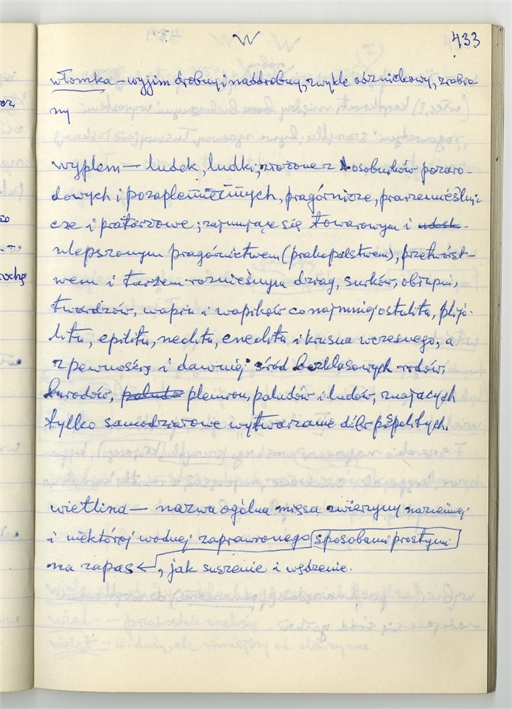 W
433
włomka — wyjim drobny i naddrobny, zwykle odrzickowy, zrobio
ny
wyplem — ludek, ludki, złożone z osobników pozaro-
dowych i pozaplemiennych, pragórnicze, prarzemieślni-
cze i pratarzowe; zajmujące się towarowym i
ulepszonym pragórnictwem (prakopalstwem), przetwórst-
wem i także roznieśnym dziag, surków, obłupni,
twardzów, wapnia i wapików co najmniej ostulitu, pliji-
litu, epilitu, neolitu, eneolitu i krusza wczesnego, a
z pewnością i dawniej śród bezklasowych rodów,
burodów, plemion, paludów i ludów, znających
tylko samodziałowe wytwarzanie dóbr pospolitych.
wietlina — nazwa ogólna mięsa zwierzyny naziemnej
i niektórej wodnej zaprawionego sposobami prostymi
na zapas, jak suszenie i wędzenie.